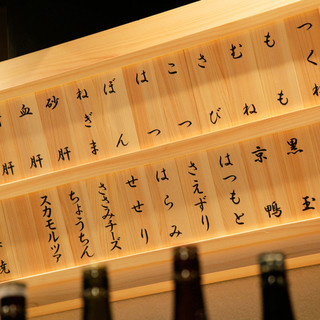 つくね
もも
むね
さび
こつ
はつ
ぼん
ねぎま
砂肝
血肝
黒玉
京鴨
はつもと
さえずり
はらみ
せせり
ささみチーズ
ちょうちん
スカモルツァ
焼